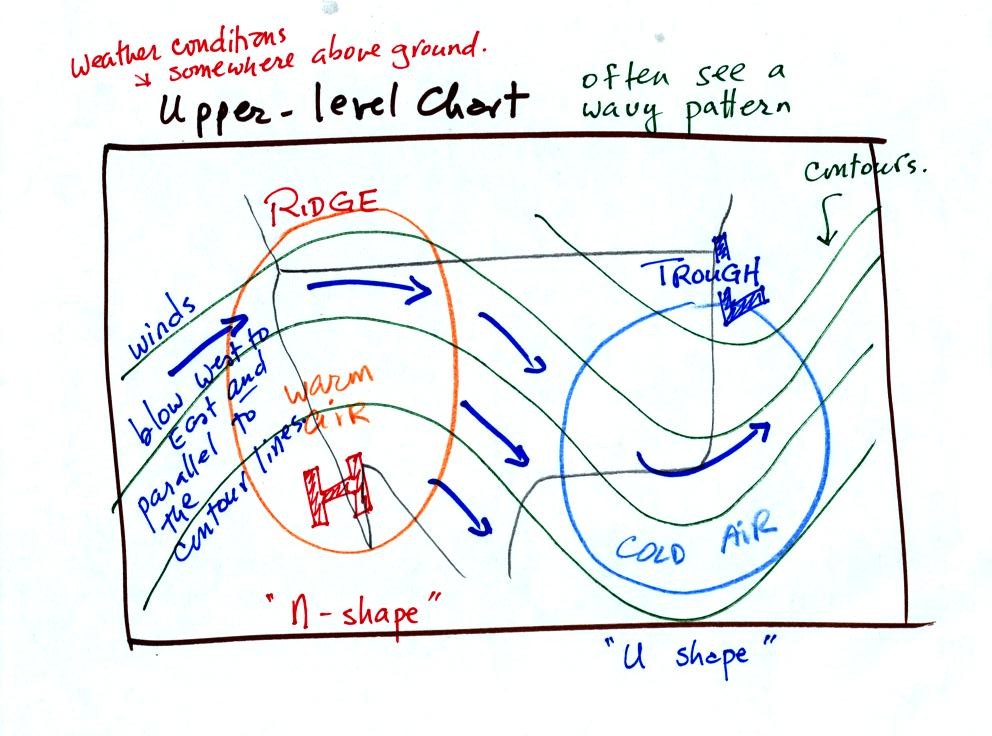 weather conditions
somewhere above ground.
Upper-level Chart
often see a
wavy pattern
contours.
RIDGE
TROUGH
L
winds
blow west to
East and
parallel to
the
contour lines.
warm
air
H
COLD AIR
"n-shape"
"U shape"